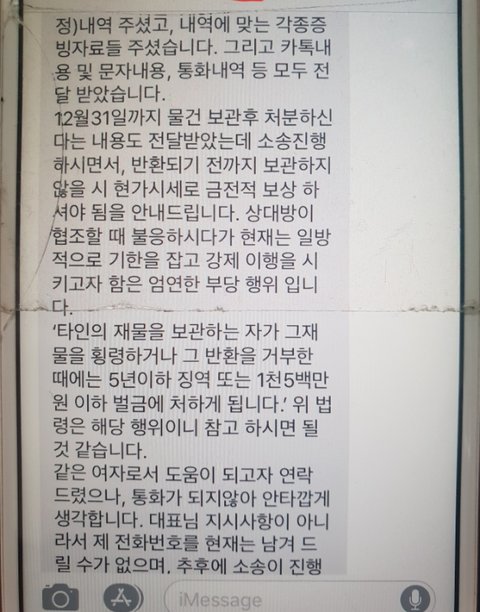 정)내역 주셨고, 내역에 맞는 각종증
빙자료들 주셨습니다. 그리고 카톡내
용 및 문자내용, 통화내역 등 모두 전
달 받았습니다.
12월31일까지 물건 보관후 처분하신
다는 내용도 전달받았는데 소송진행
하시면서, 반환되기 전까지 보관하지
않을 시 현가시세로 금전적 보상 하
셔야 됨을 안내드립니다. 상대방이
협조할 때 불응하시다가 현재는 일방
적으로 기한을 잡고 강제 이행을 시
키고자 함은 엄연한 부당 행위 입니
다.
'타인의 재물을 보관하는 자가 그재
물을 횡령하거나 그 반환을 거부한
때에는 5년이하 징역 또는 1천5백만
원 이하 벌금에 처하게 됩니다.' 위 법
령은 해당 행위이니 참고 하시면 될
것 같습니다.
같은 여자로서 도움이 되고자 연락
드렸으나, 통화가 되지않아 안타깝게
생각합니다. 대표님 지시사항이 아니
라서 제 전화번호를 현재는 남겨 드
릴 수가 없으며, 추후에 소송이 진행
iMessage